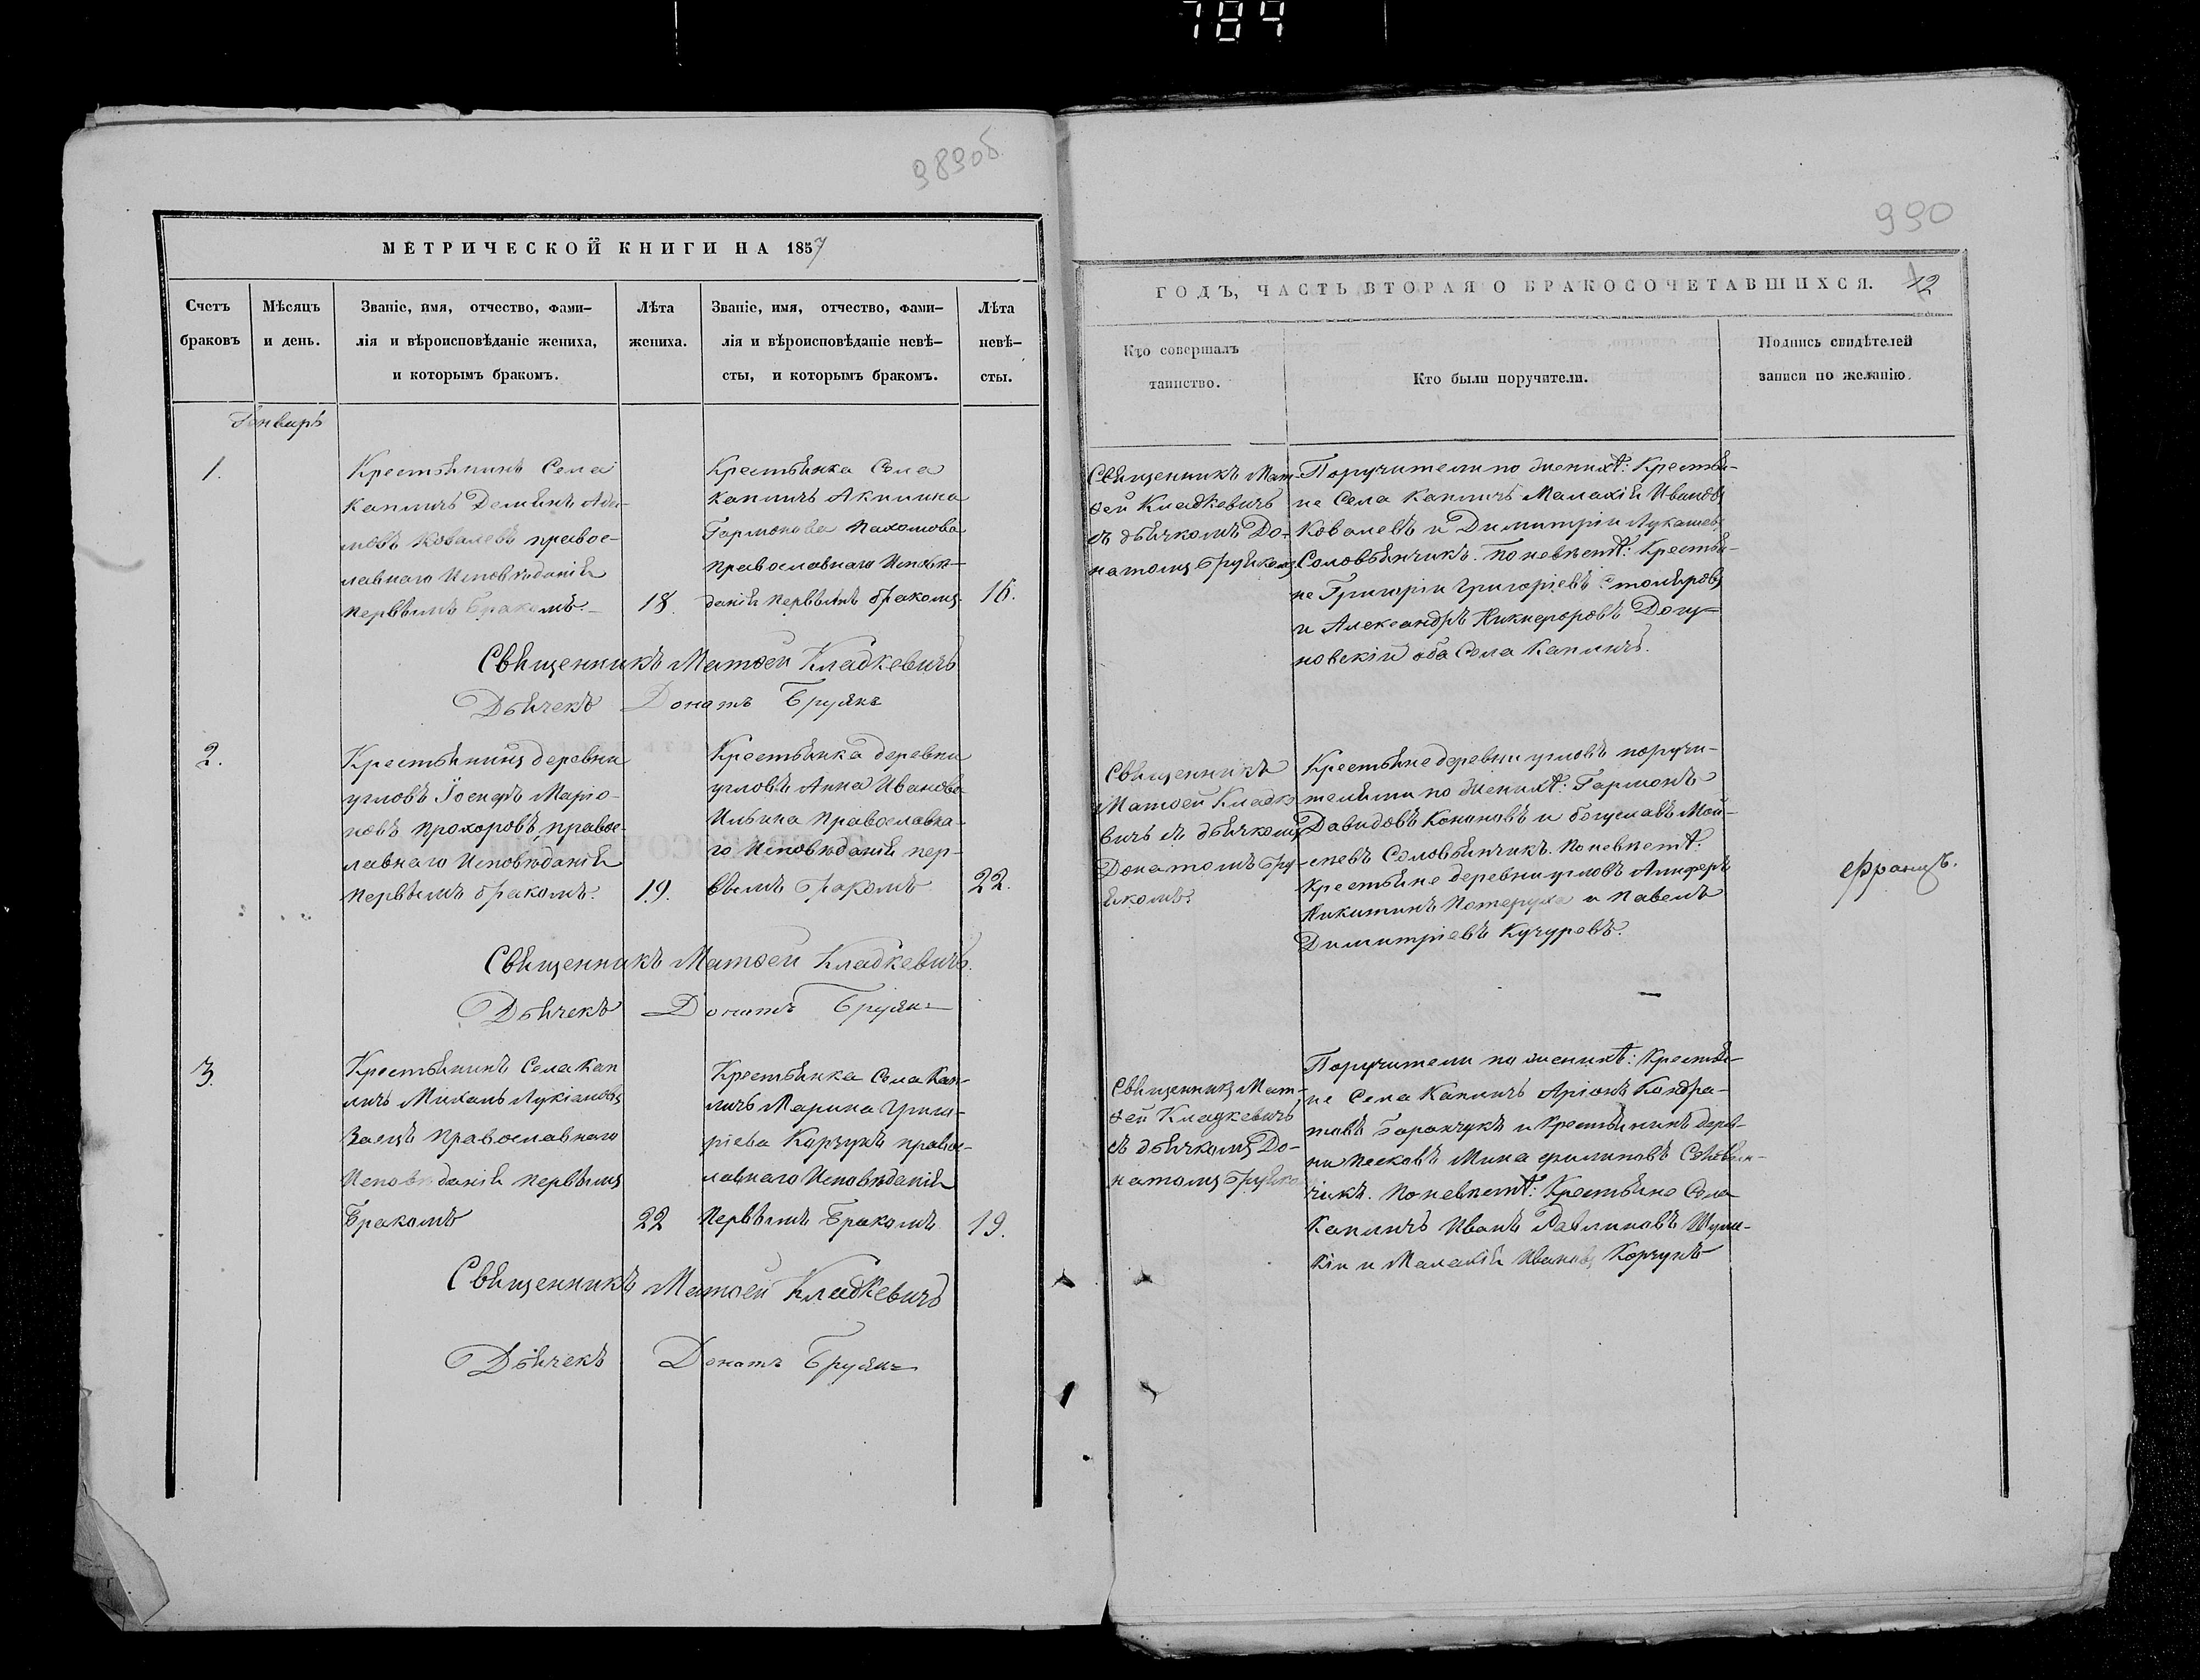 784
989об
МЕТРИЧЕСКОЙ КНИГИ НА 1857
Счетъ
браковъ
Мѣсяцъ
и день.
Званіе, имя, отчество, фами-
лія и вѣроисповѣданіе жениха,
и которымъ бракомъ.
Лѣта
жениха.
Званіе, имя, отчество, фами-
лія и вѣроисповѣданіе невѣ-
сты, и которымъ бракомъ.
Лѣта
невѣ-
сты.
Генварь
1.
Крестьянинъ Села
Капличъ Демьянъ
Ковалевъ правос-
лавнаго Исповѣданія
первымъ Бракомъ.
18.
Крестьянка Села
Капличъ Акилина
Гармонова Пахомова
православнаго Исповѣ-
данія первымъ бракомъ
16.
Священникъ Матѳей Кладкевичъ
Дьячекъ Донатъ Бруякъ
2.
Крестьянинъ деревни
угловъ Іосифъ Маріо-
новъ Прохоровъ, правос-
лавнаго Исповѣданія
первымъ бракомъ.
19.
Крестьянка деревни
угловъ Анна Иванова
Ильина Православна-
го Исповѣданія пер-
вымъ бракомъ
22.
Священникъ Матѳей Кладкевичъ.
Дьячекъ Донатъ Бруякъ
3.
Крестьянинъ Села Кап
личъ Михаилъ Лукіановъ
Заецъ Православнаго
Исповѣданія первымъ
Бракомъ
22
Крестьянка Села Кап-
личъ Марина Григо-
ріева Корзунъ правос-
лавнаго Исповѣданія
Первымъ Бракомъ
19.
Священникъ Матѳей Кладкевичъ
Дьячекъ Донатъ Бруякъ
990
ГОДЪ, ЧАСТЬ ВТОРАЯ О БРАКОСОЧЕТАВШИХСЯ.
12
Кто совершалъ
таинство.
Кто были поручители.
Подпись свидѣтелей
записи по желанію.
Священникъ Мат-
ѳей Кладкевичъ
съ дьячкомъ До-
натомъ Бруякомъ
Поручители по женихѣ: Крестья-
не Села Капличъ Малахій Ивановъ
Ковалевъ и Димитрій Лукашевъ
Соловьянчикъ. По невѣстѣ: Крестья-
не Григорій Григоріевъ Столяровъ
и Александръ Никифоровъ Догу-
новскій оба Села Капличъ.
Священникъ
Матѳей Кладке
вичъ съ дьячкомъ
Донатомъ Бру-
якомъ
Крестьяне деревни угловъ поручи-
телями по женихѣ: Гармонъ
Давидовъ Кононовъ и Богуславъ Мой-
сеевъ Соловьянчикъ. По невѣстѣ:
Крестьяне деревни угловъ Алиферъ
Никитинъ Потеруха и Павелъ
Димитріевъ Кучуревъ.
Францъ.
Священникъ Мат-
ѳей Кладкевичъ
съ дьячкомъ До-
натомъ Бруяко
Поручители по женихѣ: Крестья-
не Села Капличъ Аріонъ Кондра-
товъ Баранчукъ и Крестьянинъ дерев-
ни Песковъ Мина Филиповъ Соловьян-
чикъ. По невѣстѣ: Крестьяне Села
Капличъ Иванъ Павлиновъ
и Малахій Ивановъ Корзунъ